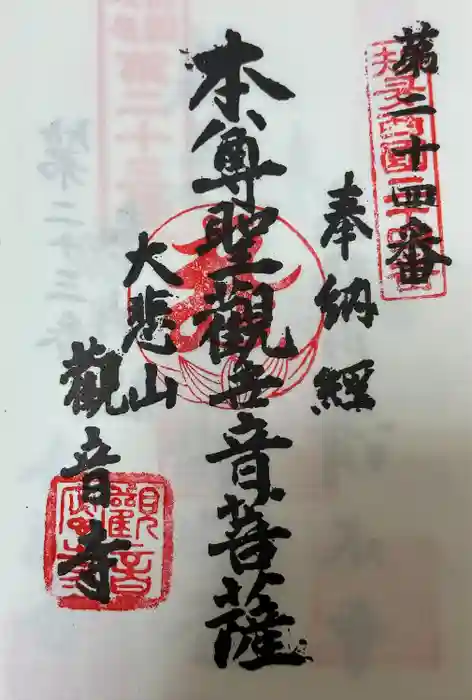 第二十四番
奉納經
本尊聖觀世音菩薩
大悲山
觀音寺